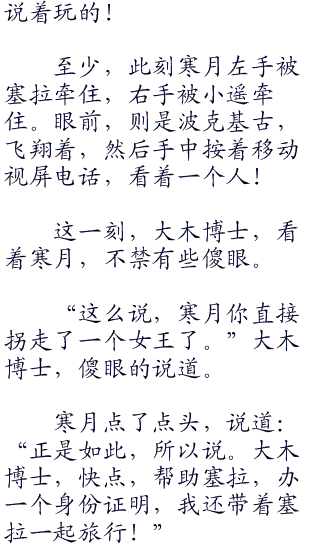 说着玩的！
至少，此刻寒月左手被
塞拉牵住，右手被小遥牵
住。眼前，则是波克基古，
飞翔着，然后手中按着移动
视屏电话，看着一个人！
这一刻，大木博士，看
着寒月，不禁有些傻眼。
“这么说，寒月你直接
拐走了一个女王了。”大木
博士，傻眼的说道。
寒月点了点头，说道：
“正是如此，所以说。大木
博士，快点，帮助塞拉，办
一个身份证明，我还带着塞
拉一起旅行！”